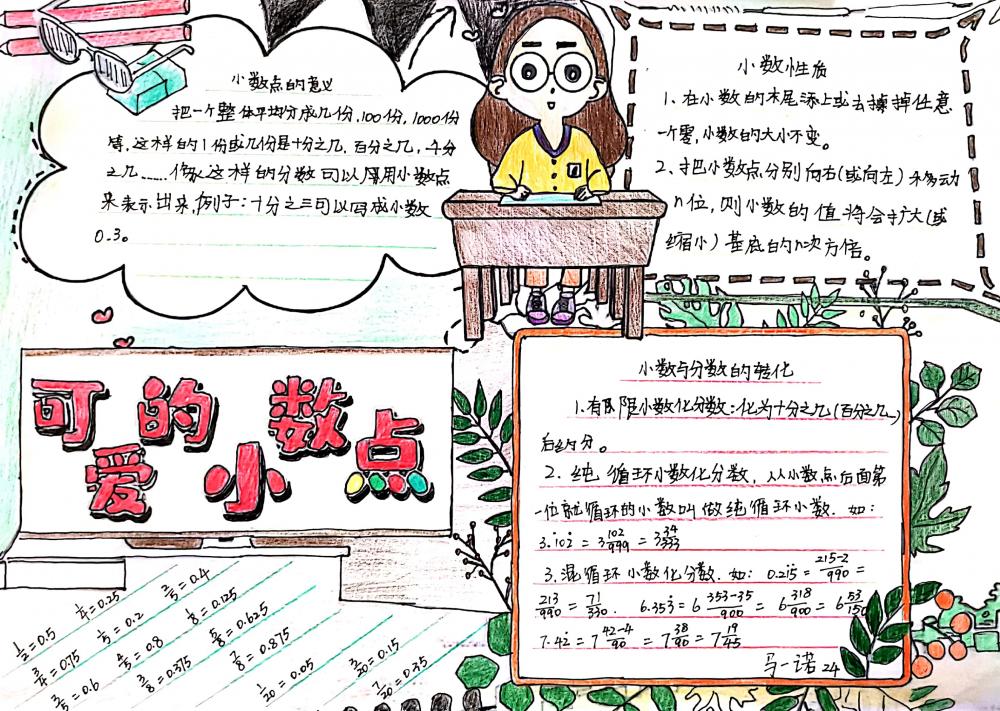 小数点的意义
把一个整体平均分成几份,100份,1000份
等,这样的1份或几份是十分之几,百分之几,千分
之几……像这样的分数可以用小数点
来表示出来,例子:十分之三可以写成小数
0.3。
小数性质
1、在小数的末尾添上或去掉掉任意
一个零,小数的大小不变。
2、把小数点,分别向右(或向左)移动
n位,则小数的值将会扩大(或
缩小)基底的n次方倍。
可爱的小数点
小数与分数的转化
1.有限小数化分数:化为十分之几(百分之几…)
后约分。
2.纯循环小数化分数,从小数点后面第
一位就循环的小数叫做纯循环小数.如:
3.1̇02̇=3 102/999=3 34/333
3.混循环小数化分数.如: 0.21̇5̇=215-2/990=
213/990=71/330. 6.353̇=6 353-35/900=6 318/900=6 53/150
7.42̇=7 42-4/90=7 38/90=7 19/45
马一诺 24
1/2=0.5 1/4=0.25 2/5=0.4
3/4=075 1/5=0.2 1/8=0.125
3/5=0.6 4/5=0.8 5/8=0.625
3/8=0.375 7/8=0.875
1/20=0.05 3/20=0.15
7/20=0.35